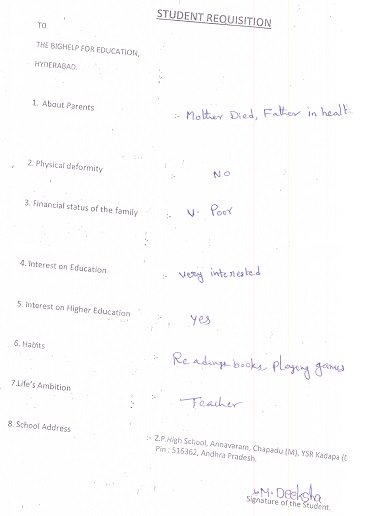 STUDENT REQUISITION
TO
THE BIGHELP FOR EDUCATION,
HYDERABAD.
1. About Parents :- Mother Died, Father in healt
2. Physical deformity :- NO
3. Financial status of the family :- V. Poor
4. Interest on Education :- very interested
5. Interest on Higher Education :- yes
6. Habits :- Readings books, Playing games
7. Life's Ambition :- Teacher
8. School Address
:- Z.P.High School, Annavaram, Chapadu (M), YSR Kadapa (
Pin : 516362, Andhra Pradesh.
M. Deeksha
Signature of the Student.